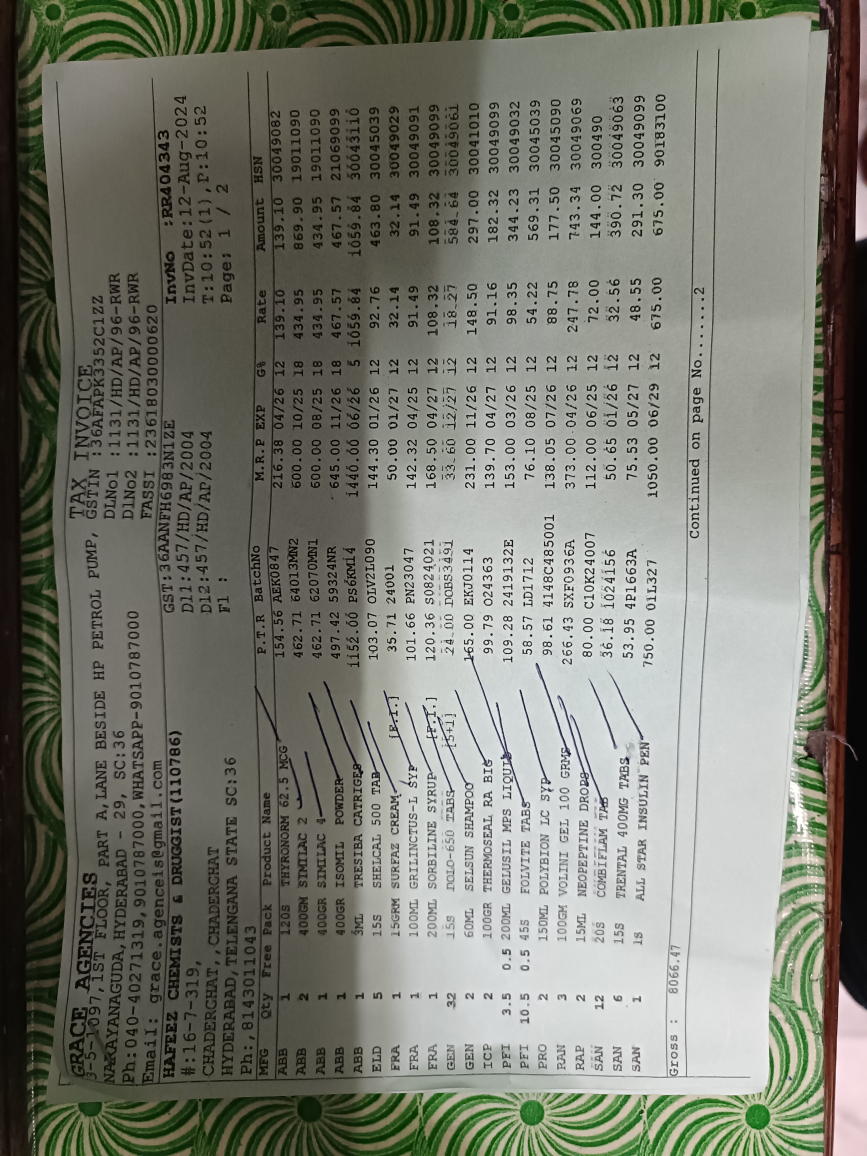 GRACE AGENCIES TAX INVOICE
3-5-1097,1ST FLOOR, PART A,LANE BESIDE HP PETROL PUMP, GSTIN :36AFAPK3352C1ZZ
NARAYANAGUDA,HYDERABAD - 29, SC:36 DLNo1 :1131/HD/AP/96-RWR
Ph:040-40271319,9010787000,WHATSAPP-9010787000 DLNo2 :1131/HD/AP/96-RWR
Email: grace.agenceis@gmail.com FASSI :23618030000620
HAFEEZ CHEMISTS & DRUGGIST(110786) GST:36AANFH6983N1ZE InvNo :RR404343
#:16-7-319, Dl1:457/HD/AP/2004 InvDate:12-Aug-2024
CHADERCHAT,,CHADERCHAT Dl2:457/HD/AP/2004 T:10:52(1),P:10:52
HYDERABAD,TELENGANA STATE SC:36 Fl : Page: 1 / 2
Ph:,8143011043
MFG Qty Free Pack Product Name P.T.R BatchNo M.R.P EXP G% Rate Amount HSN
ABB 1 120S THYRONORM 62.5 MCG 154.56 AEK0847 216.38 04/26 12 139.10 139.10 30049082
ABB 2 400GM SIMILAC 2 462.71 64013MN2 600.00 10/25 18 434.95 869.90 19011090
ABB 1 400GR SIMILAC 4 462.71 62070MN1 600.00 08/25 18 434.95 434.95 19011090
ABB 1 400GR ISOMIL POWDER 497.42 59324NR 645.00 11/26 18 467.57 467.57 21069099
ABB 1 3ML TRESIBA CATRIGES 1152.00 PS6KM14 1440.00 06/26 5 1059.84 1059.84 30043110
ELD 5 15S SHELCAL 500 TAB 103.07 OLV2L090 144.30 01/26 12 92.76 463.80 30045039
FRA 1 15GRM SURFAZ CREAM [F.I.] 35.71 24001 50.00 01/27 12 32.14 32.14 30049029
FRA 1 100ML GRILINCTUS-L SYP 101.66 PN23047 142.32 04/25 12 91.49 91.49 30049091
FRA 1 200ML SORBILINE SYRUP [F.I.] 120.36 S0824021 168.50 04/27 12 108.32 108.32 30049099
GEN 32 15S DOLO-650 TABS [5+1] 24.00 DOBS3491 33.60 12/27 12 18.27 584.64 30049061
GEN 2 60ML SELSUN SHAMPOO 165.00 EKJ0114 231.00 11/26 12 148.50 297.00 30041010
ICP 2 100GR THERMOSEAL RA BIG 99.79 O24363 139.70 04/27 12 91.16 182.32 30049099
PFI 3.5 0.5 200ML GELUSIL MPS LIQUID 109.28 2419132E 153.00 03/26 12 98.35 344.23 30049032
PFI 10.5 0.5 45S FOLVITE TABS 58.57 LDI712 76.10 08/25 12 54.22 569.31 30045039
PRO 2 150ML POLYBION LC SYP 98.61 4148C485001 138.05 07/26 12 88.75 177.50 30045090
RAN 3 100GM VOLINI GEL 100 GRMS 266.43 SXF0936A 373.00 04/26 12 247.78 743.34 30049069
RAP 2 15ML NEOPEPTINE DROPS 80.00 C10K24007 112.00 06/25 12 72.00 144.00 300490
SAN 12 20S COMBIFLAM TAB 36.18 1024156 50.65 01/26 12 32.56 390.72 30049063
SAN 6 15S TRENTAL 400MG TABS 53.95 4P1663A 75.53 05/27 12 48.55 291.30 30049099
SAN 1 1S ALL STAR INSULIN PEN 750.00 01L327 1050.00 06/29 12 675.00 675.00 90183100
Gross : 8066.47 Continued on page No.......2